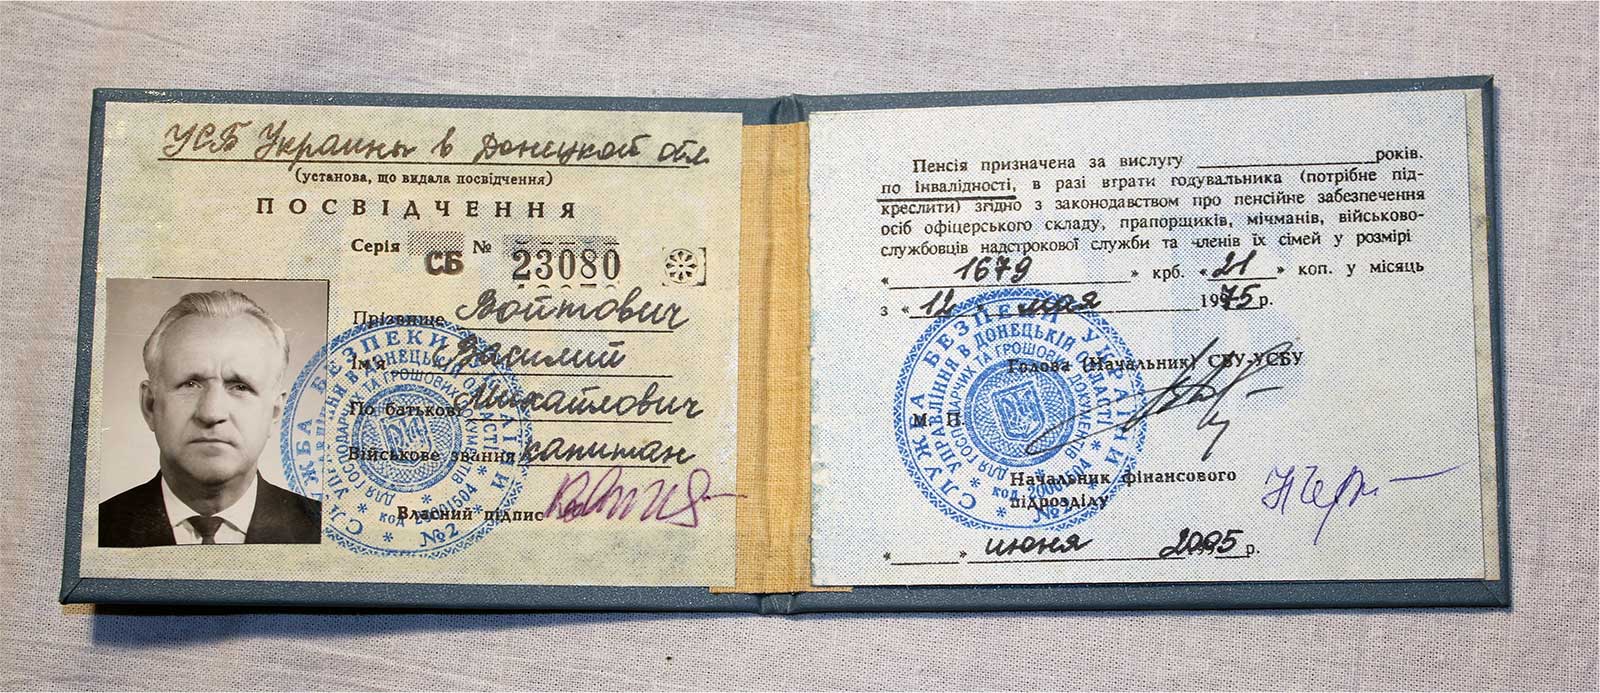 УСБ Украины в Донецкой обл.
(установа, що видала посвідчення)
ПОСВІДЧЕННЯ
Серія СБ № 23080
Прізвище Войтович
Ім'я Василий
По батькові Михайлович
Військове звання капитан
Власний підпис
СЛУЖБА БЕЗПЕКИ УКРАЇНИ
УПРАВЛІННЯ В ДОНЕЦЬКІЙ ОБЛАСТІ
ДЛЯ ГОСПОДАРЧИХ ТА ГРОШОВИХ ДОКУМЕНТІВ
* код 20001504 *
* №2 *
Пенсія призначена за вислугу ______ років.
по інвалідності, в разі втрати годувальника (потрібне під-
креслити) згідно з законодавством про пенсійне забезпечення
осіб офіцерського складу, прапорщиків, мічманів, військово-
службовців надстрокової служби та членів їх сімей у розмірі
« 1679 » крб. « 21 » коп. у місяць
з « 12 » мая 1975 р.
Голова (Начальник) СБУ-УСБУ
М. П.
Начальник фінансового
підрозділу
« » июня 2005 р.
СЛУЖБА БЕЗПЕКИ УКРАЇНИ
УПРАВЛІННЯ В ДОНЕЦЬКІЙ ОБЛАСТІ
ДЛЯ ГОСПОДАРЧИХ ТА ГРОШОВИХ ДОКУМЕНТІВ
* код 20001504 *
* №2 *